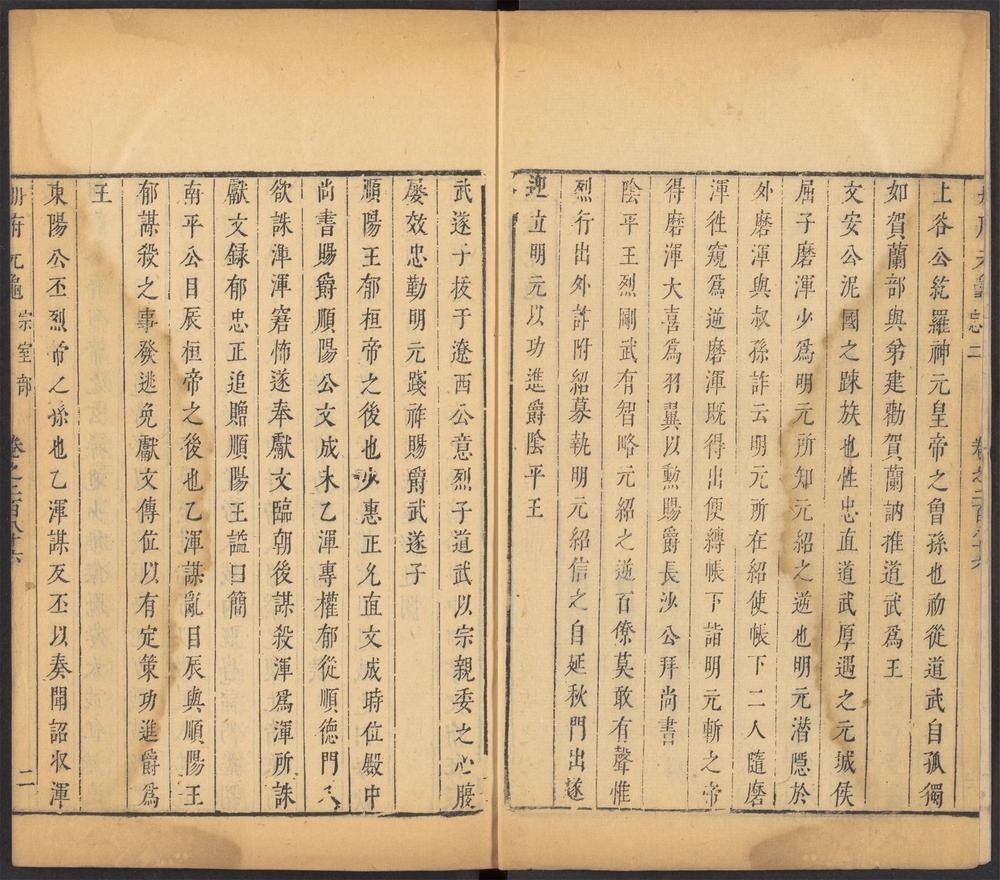 冊府元龜 忠二 卷之二百八十六
上谷公紇羅神元皇帝之魯孫也初從道武自孤獨
如賀蘭部與弟建勸賀蘭訥推道武爲王
文安公泥國之踈族也性忠直道武厚遇之元城侯
屈子磨渾少爲明元所知元紹之逆也明元潜隱於
外磨渾與叔孫詐云明元所在紹使帳下二人隨磨
渾徃窺爲逆磨渾既得出便縛帳下詣明元斬之帝
得磨渾大喜爲羽翼以勲賜爵長沙公拜尚書
陰平王烈剛武有智略元紹之逆百僚莫敢有聲惟
烈行出外詐附紹募執明元紹信之自延秋門出遂
迎立明元以功進爵陰平王
武遂子拔于遼西公意烈子道武以宗親委之心腹
屡效忠勤明元踐祚賜爵武遂子
順陽王郁桓帝之後也少惠正允直文成時位殿中
尚書賜爵順陽公文成未乙渾專權郁從順德門入
欲誅渾渾窘怖遂奉獻文臨朝後謀殺渾爲渾所誅
獻文録郁忠正追贈順陽王謚曰簡
南平公目辰桓帝之後也乙渾謀亂目辰與順陽王
郁謀殺之事發逃免獻文傳位以有定策功進爵爲
王
東陽公丕烈帝之孫也乙渾謀反丕以奏聞詔收渾
冊府元龜 宗室部 卷之二百八十六 二